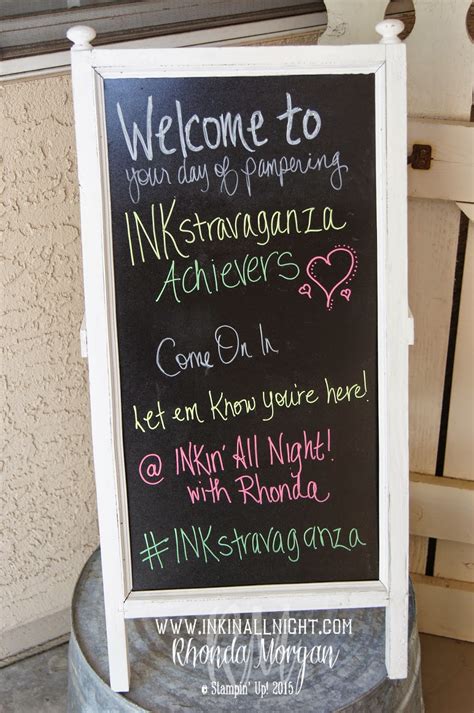 Welcome to
your day of pampering
INKstravaganza
Achievers
Come On In
Let em Know you're here!
@ INKin' All Night!
with Rhonda
#INKstravaganza
WWW.INKINALLNIGHT.COM
Rhonda Morgan
© Stampin' Up! 2015